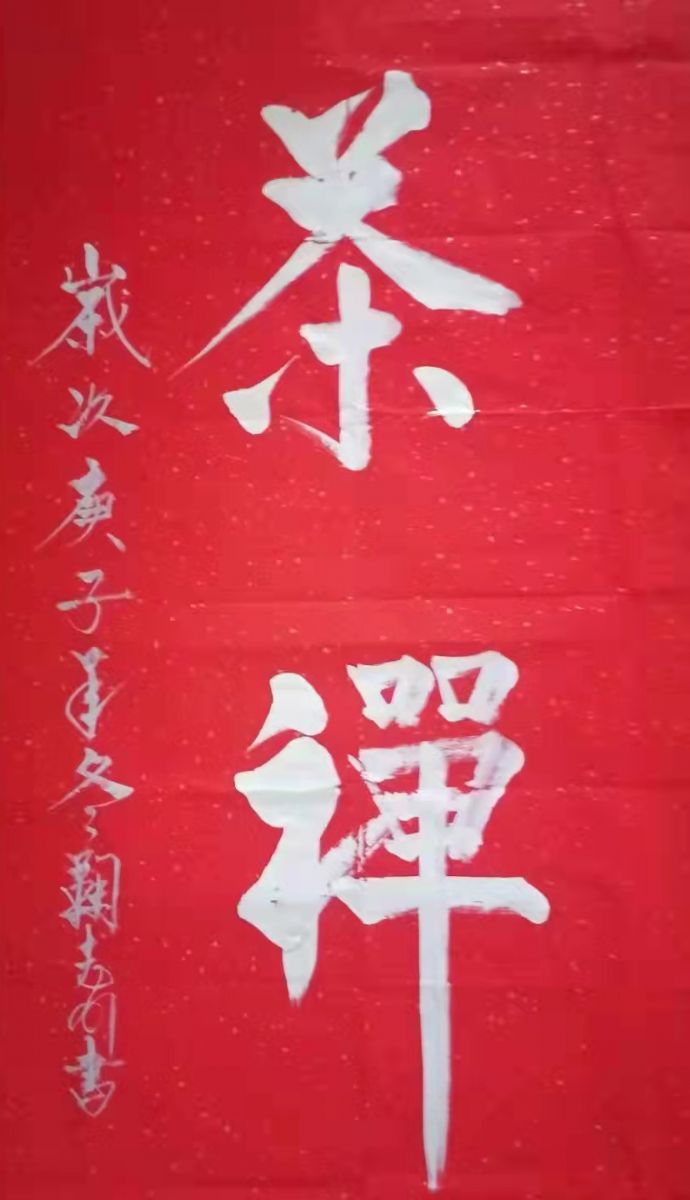 茶禪
歲次庚子年冬鞠志剛書